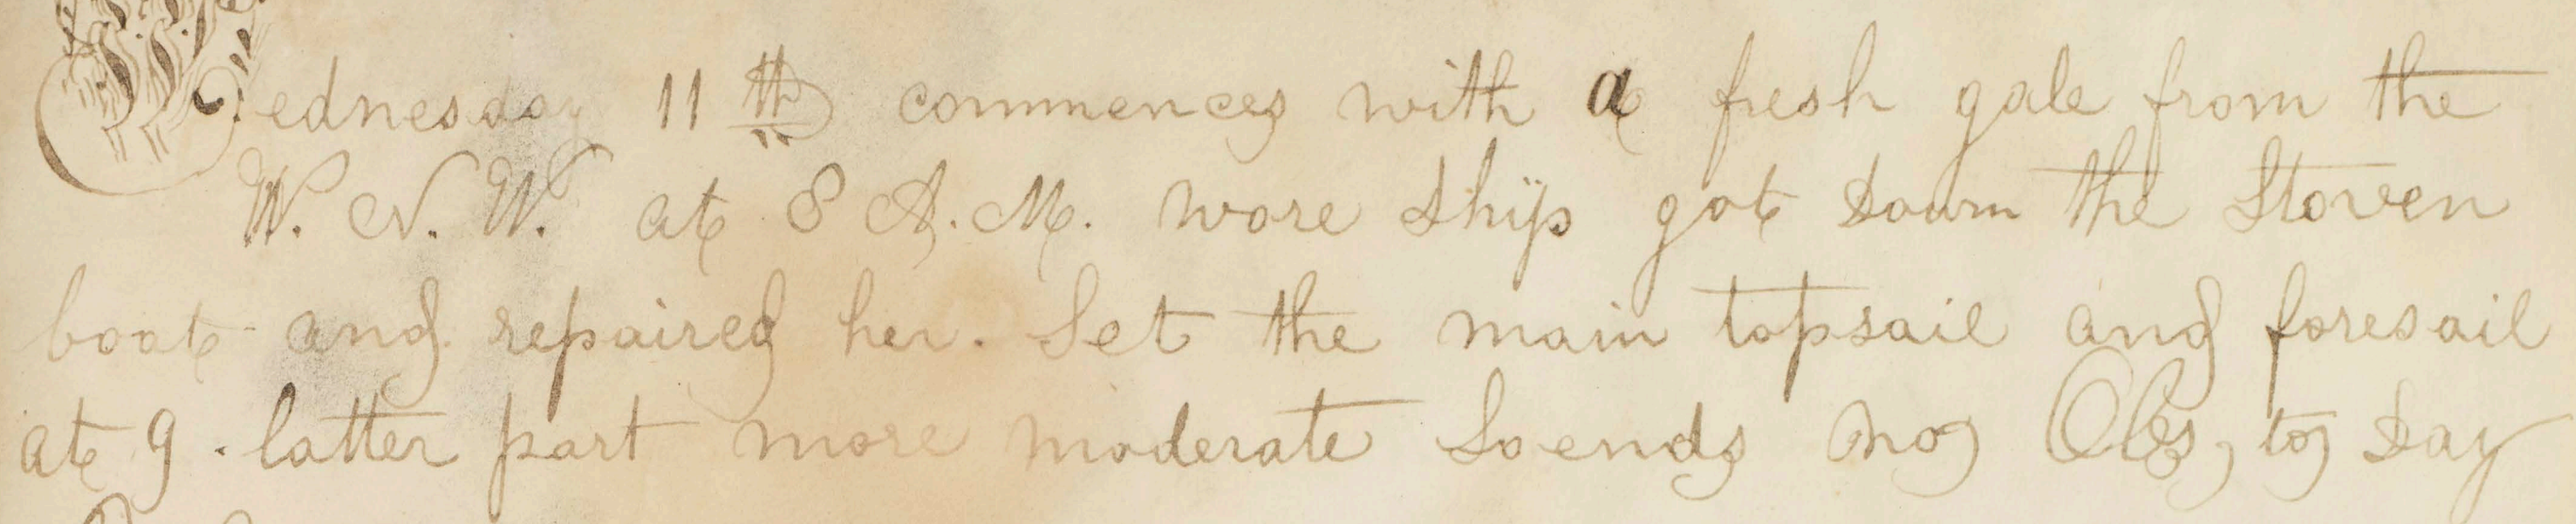 Wednesday 11th commences with a fresh gale from the
W. N. W. at 8 A. M. wore ship got down the stoven
boat and repaired her. Set the main topsail and foresail
at 9. latter part more moderate So ends no Obs, to day